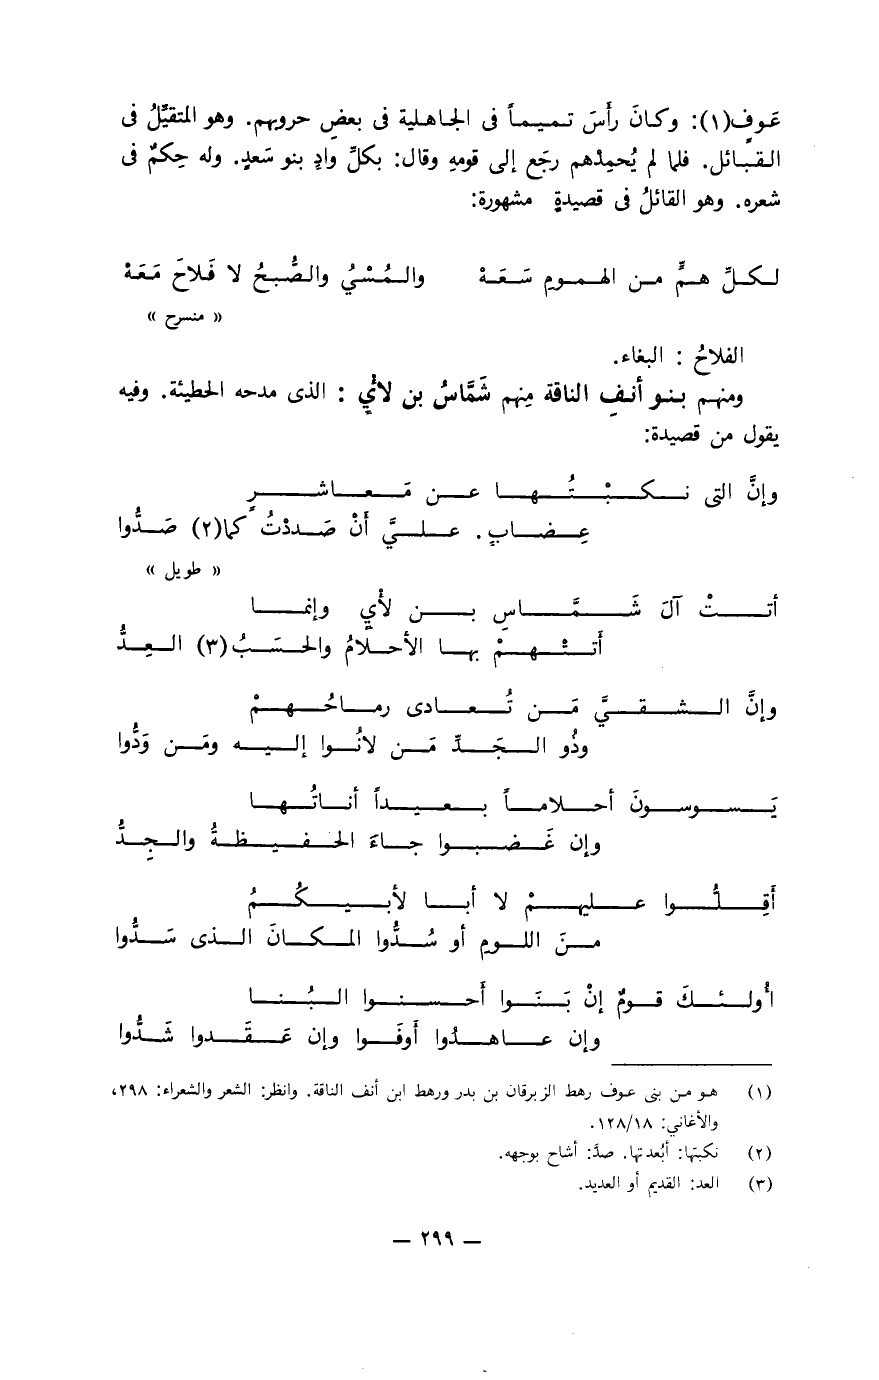 عَوفٍ(١): وكانَ رأَسَ تميماً فى الجاهلية فى بعضِ حروبهم. وهو المتقيِّلُ فى
القبائل. فلما لم يُحمِدْهم رجَع إلى قومهِ وقال: بكلِّ وادٍ بنو سَعدٍ. وله حِكمٌ فى
شعره. وهو القائلُ فى قصيدةٍ مشهورة:
لكلِّ همٍّ من الهمومِ سَعَهْ والمُسْيُ والصُّبحُ لا فَلاحَ مَعَهْ
« منسرح »
الفلاحُ : البغاء.
ومنهم بنو أنفِ الناقة مِنهم شَمَّاسُ بن لأيٍ : الذى مدحه الحطيئة. وفيه
يقول من قصيدة:
وإنَّ التى نكبْتُها عن مَعاشرٍ
عِضابٍ. عليَّ أنْ صَددْتُ كما(٢) صَدُّوا
« طويل »
أتتْ آلَ شَمَّاسِ بن لأيٍ وإنما
أَتتْهمْ بها الأحلامُ والحسَبُ(٣) العِدُّ
وإنَّ الشقيَّ مَن تُعادى رماحُهمْ
وذُو الجَدِّ مَن لانُوا إليه ومَن وَدُّوا
يَسوسونَ أحلاماً بعيداً أناتُها
وإن غَضبوا جاءَ الحفيظةُ والجِدُّ
أَقِلُّوا عليهمْ لا أبا لأبيكُمُ
منَ اللومِ أو سُدُّوا المكانَ الذى سَدُّوا
أُولئكَ قومٌ إنْ بَنَوا أحسنوا البُنا
وإن عاهدُوا أوفَوا وإن عَقَدوا شَدُّوا
(١) هو من بنى عوف رهط الزبرقان بن بدر ورهط ابن أنف الناقة. وانظر: الشعر والشعراء: ٢٩٨،
والأغاني: ١٢٨/١٨.
(٢) نكبتها: أبعدتها. صدَّ: أشاح بوجهه.
(٣) العد: القديم أو العديد.
— ٢٩٩ —